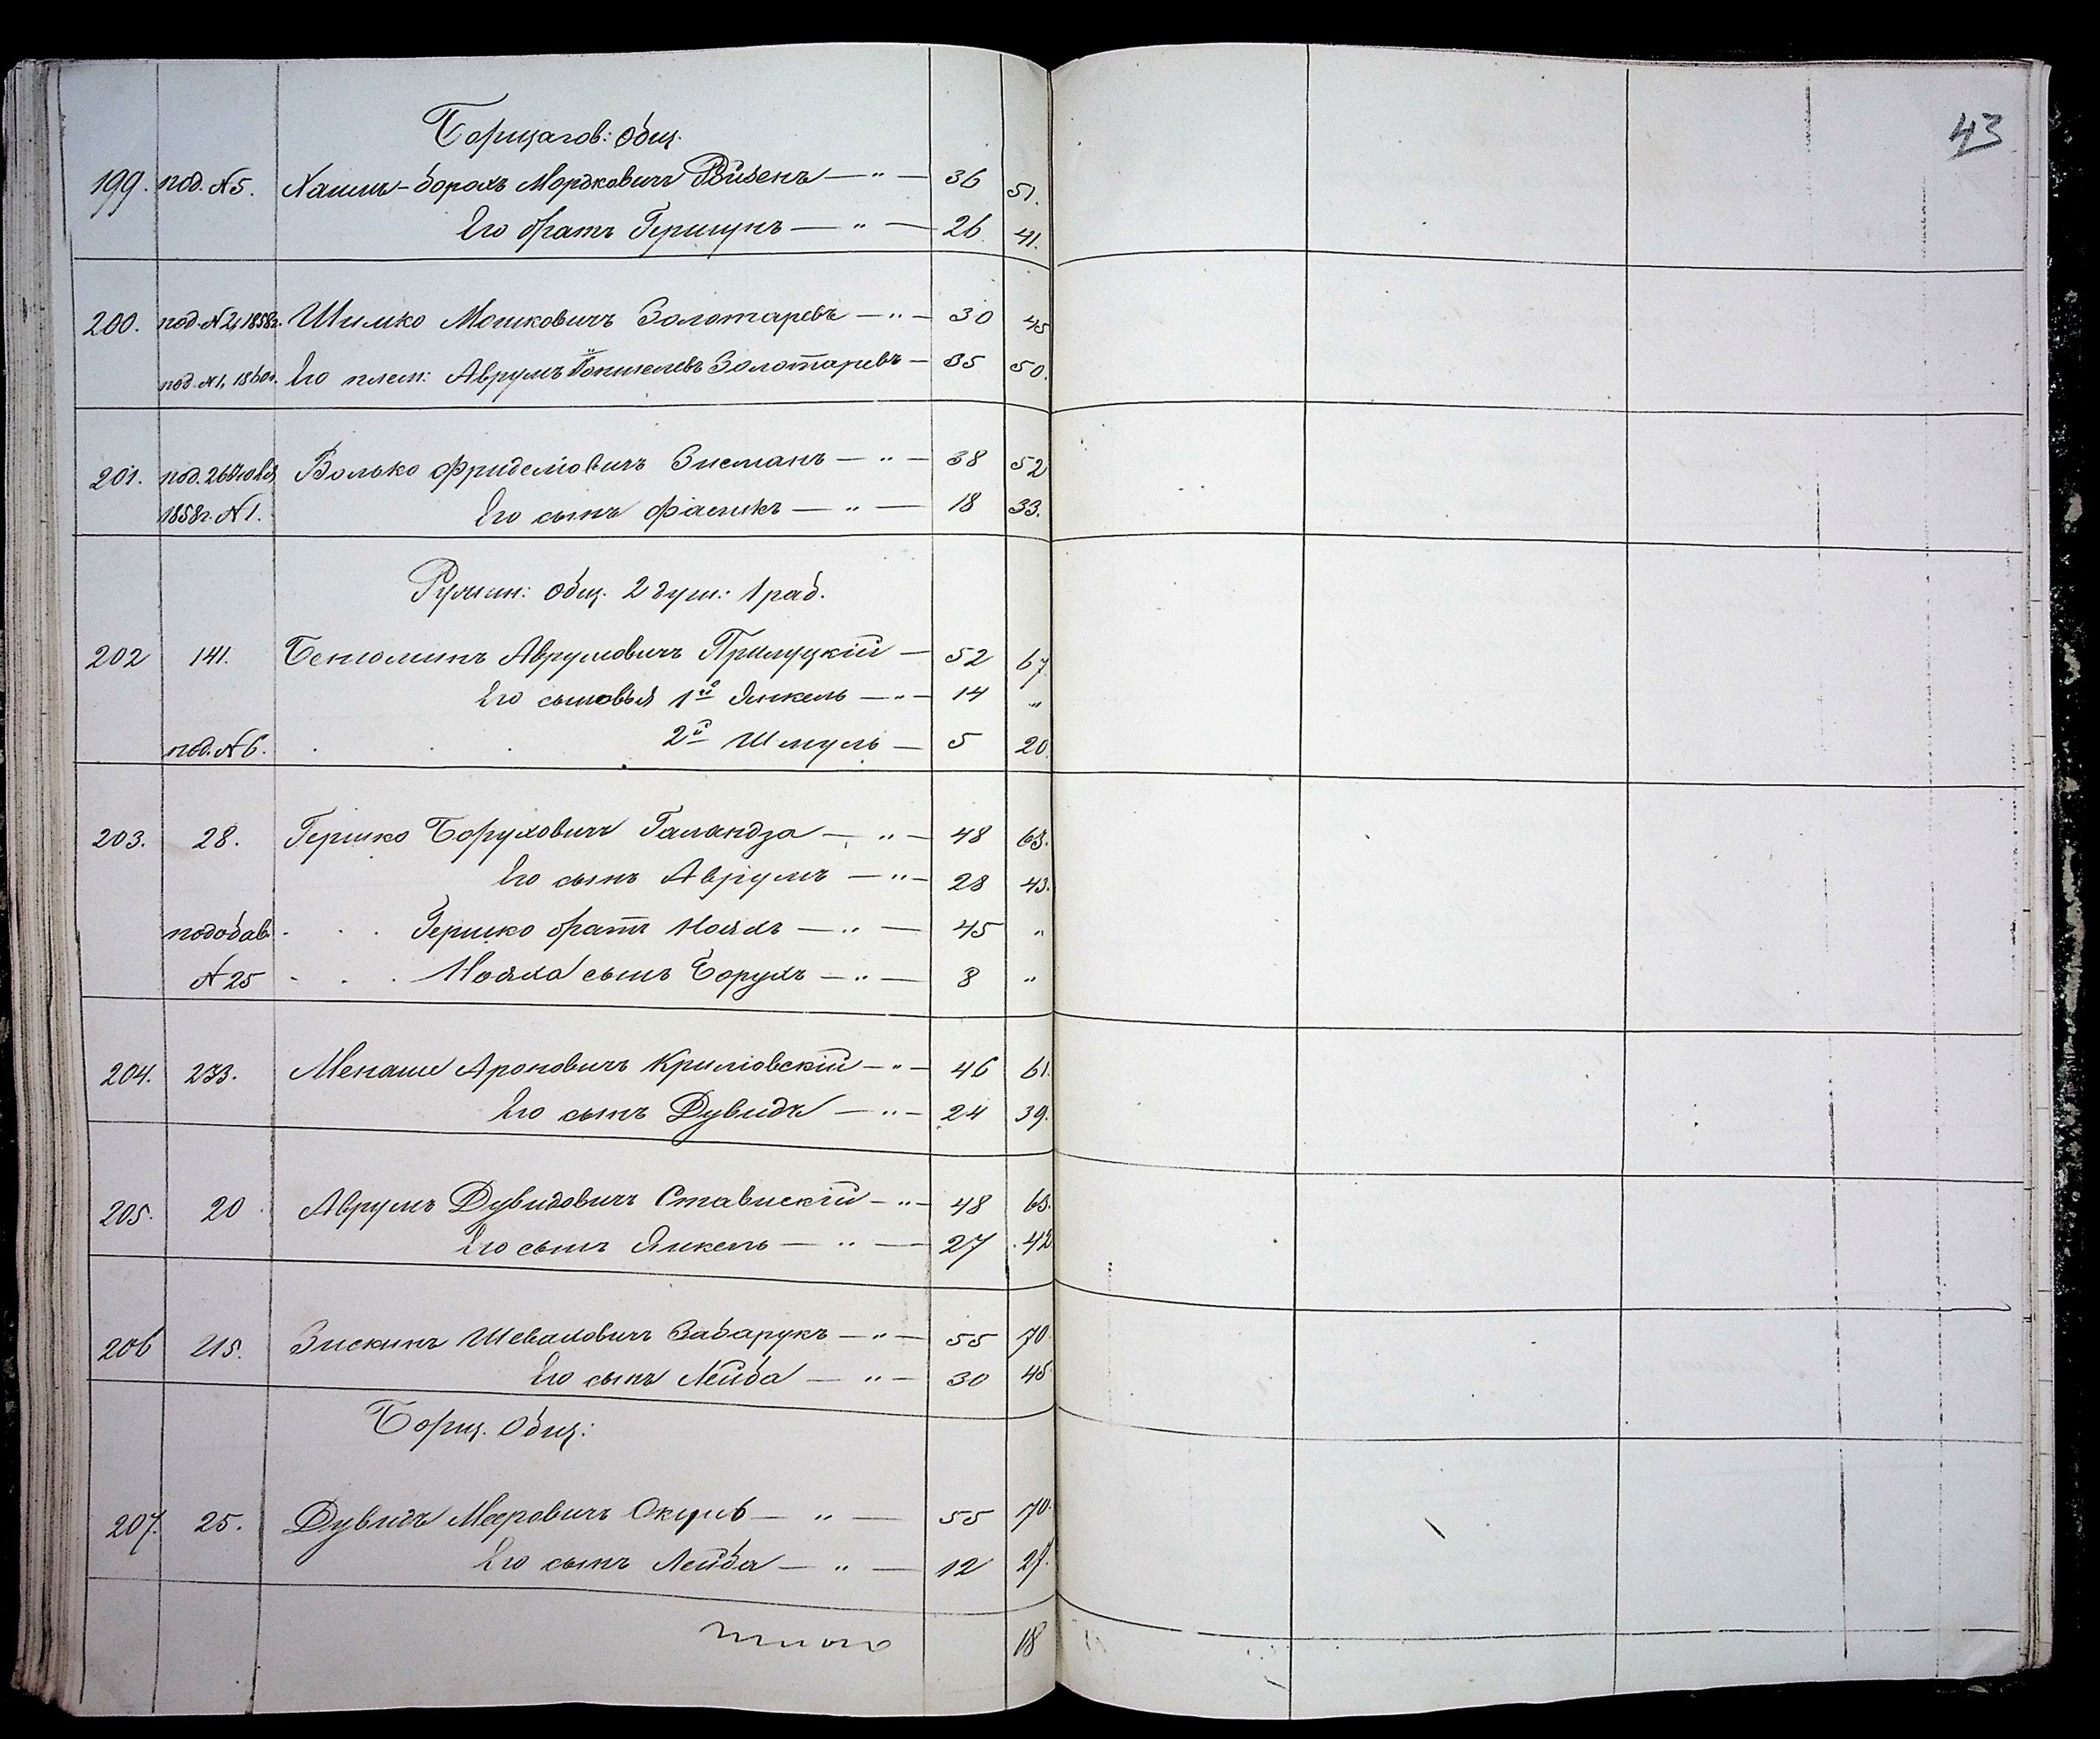 43
Борщагов: Общ.
199. под. N5. Хаимъ-Борохъ Мордковичъ Визенъ — „ — 36 51.
Его братъ Гершунъ — „ — 26 41.
200. под. N2, 1858г. Шимко Мошковичъ Золотаревъ — „ — 30 45
под. N1, 1860г. Его плем: Аврумъ Золотаревъ — 35 50.
201. под. 1858г. N1. Волько Фридемовичъ Зисманъ — „ — 38 52
Его сынъ — „ — 18 33.
Ружин: Общ. 2 душ: 1 раб.
202 141. Бенюминъ Аврумовичъ Прилуцкій — 52 67
Его сыновья 1й Янкель — „ — 14 „
под. N6. 2й Шмуль — 5 20.
203. 28. Гершко Боруховичъ Галандза — „ — 48 63.
Его сынъ Аврумъ — „ — 28 43.
подобав. Гершко братъ Нояхъ — „ — 45 „
N25 Нояха сынъ Борухъ — „ — 8 „
204. 273. Менаше Ароновичъ Криловскій — „ — 46 61.
Его сынъ Дувидъ — „ — 24 39.
205. 20 Аврумъ Дувидовичъ Ставискій — „ — 48 63.
Его сынъ Янкель — „ — 27 42
206 215. Зискинъ Шеваховичъ Забарукъ — „ — 55 70.
Его сынъ Лейба — „ — 30 45
Борщ. Общ:
207. 25. Дувидъ Мееровичъ Окунь — „ — 55 70.
Его сынъ Лейба — „ — 12 27.
Итого 18